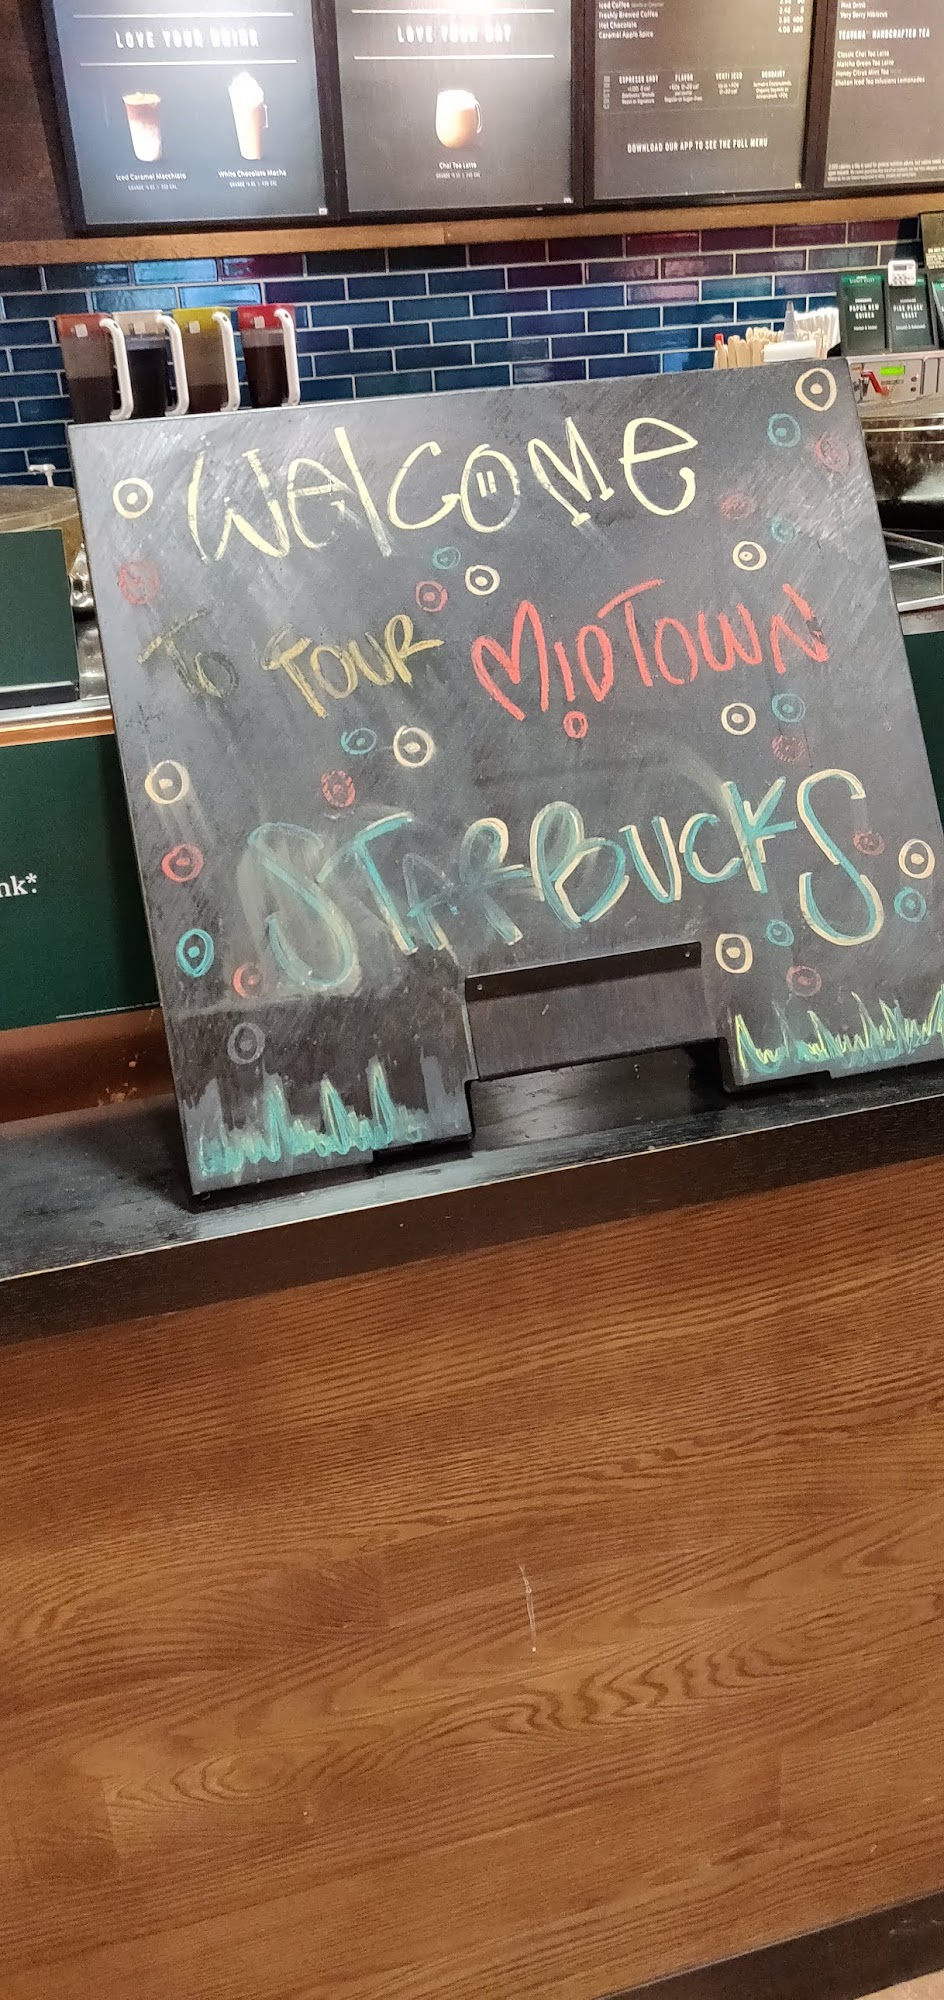 LOVE YOUR DRINK
Iced Caramel Macchiato
White Chocolate Mocha
LOVE YOUR DAY
Chai Tea Latte
Iced Coffee
Freshly Brewed Coffee
Hot Chocolate
Caramel Apple Spice
CUSTOM
ESPRESSO SHOT
FLAVOR
VENTI ICED
NONDAIRY
DOWNLOAD OUR APP TO SEE THE FULL MENU
Pink Drink
Very Berry Hibiscus
TEAVANA™ HANDCRAFTED TEA
Classic Chai Tea Latte
Matcha Green Tea Latte
Honey Citrus Mint Tea
Shaken Iced Tea Infusions Lemonades
PIKE PLACE
ROAST
WELCOME
TO YOUR MIDTOWN
STARBUCKS
nk*